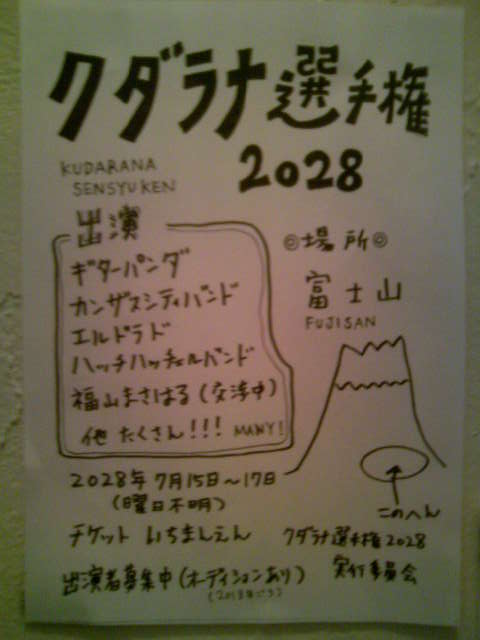 クダラナ選手権
2028
KUDARANA
SENSYUKEN
出演
ギターパンダ
カンザスシティバンド
エルドラド
ハッチハッチェルバンド
福山まさはる(交渉中)
他 たくさん!!! MANY!
◎場所◎
富士山
FUJISAN
このへん
2028年7月15日〜17日
(曜日不明)
チケット いちまんえん
出演者募集中(オーディションあり)
(2013年ごろ)
クダラナ選手権2028
実行委員会